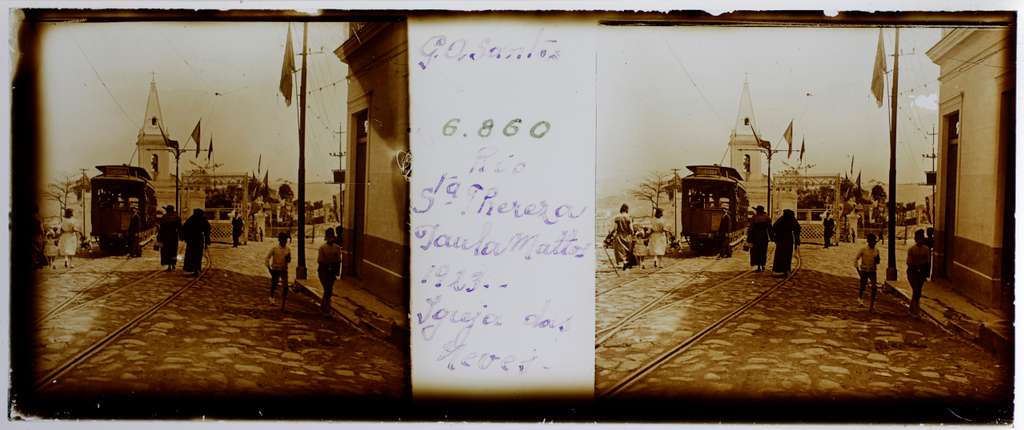 G. A Santos
6.860
Rio
Sta Thereza
Paula Mattos
1923..
Igreja das
Neves.